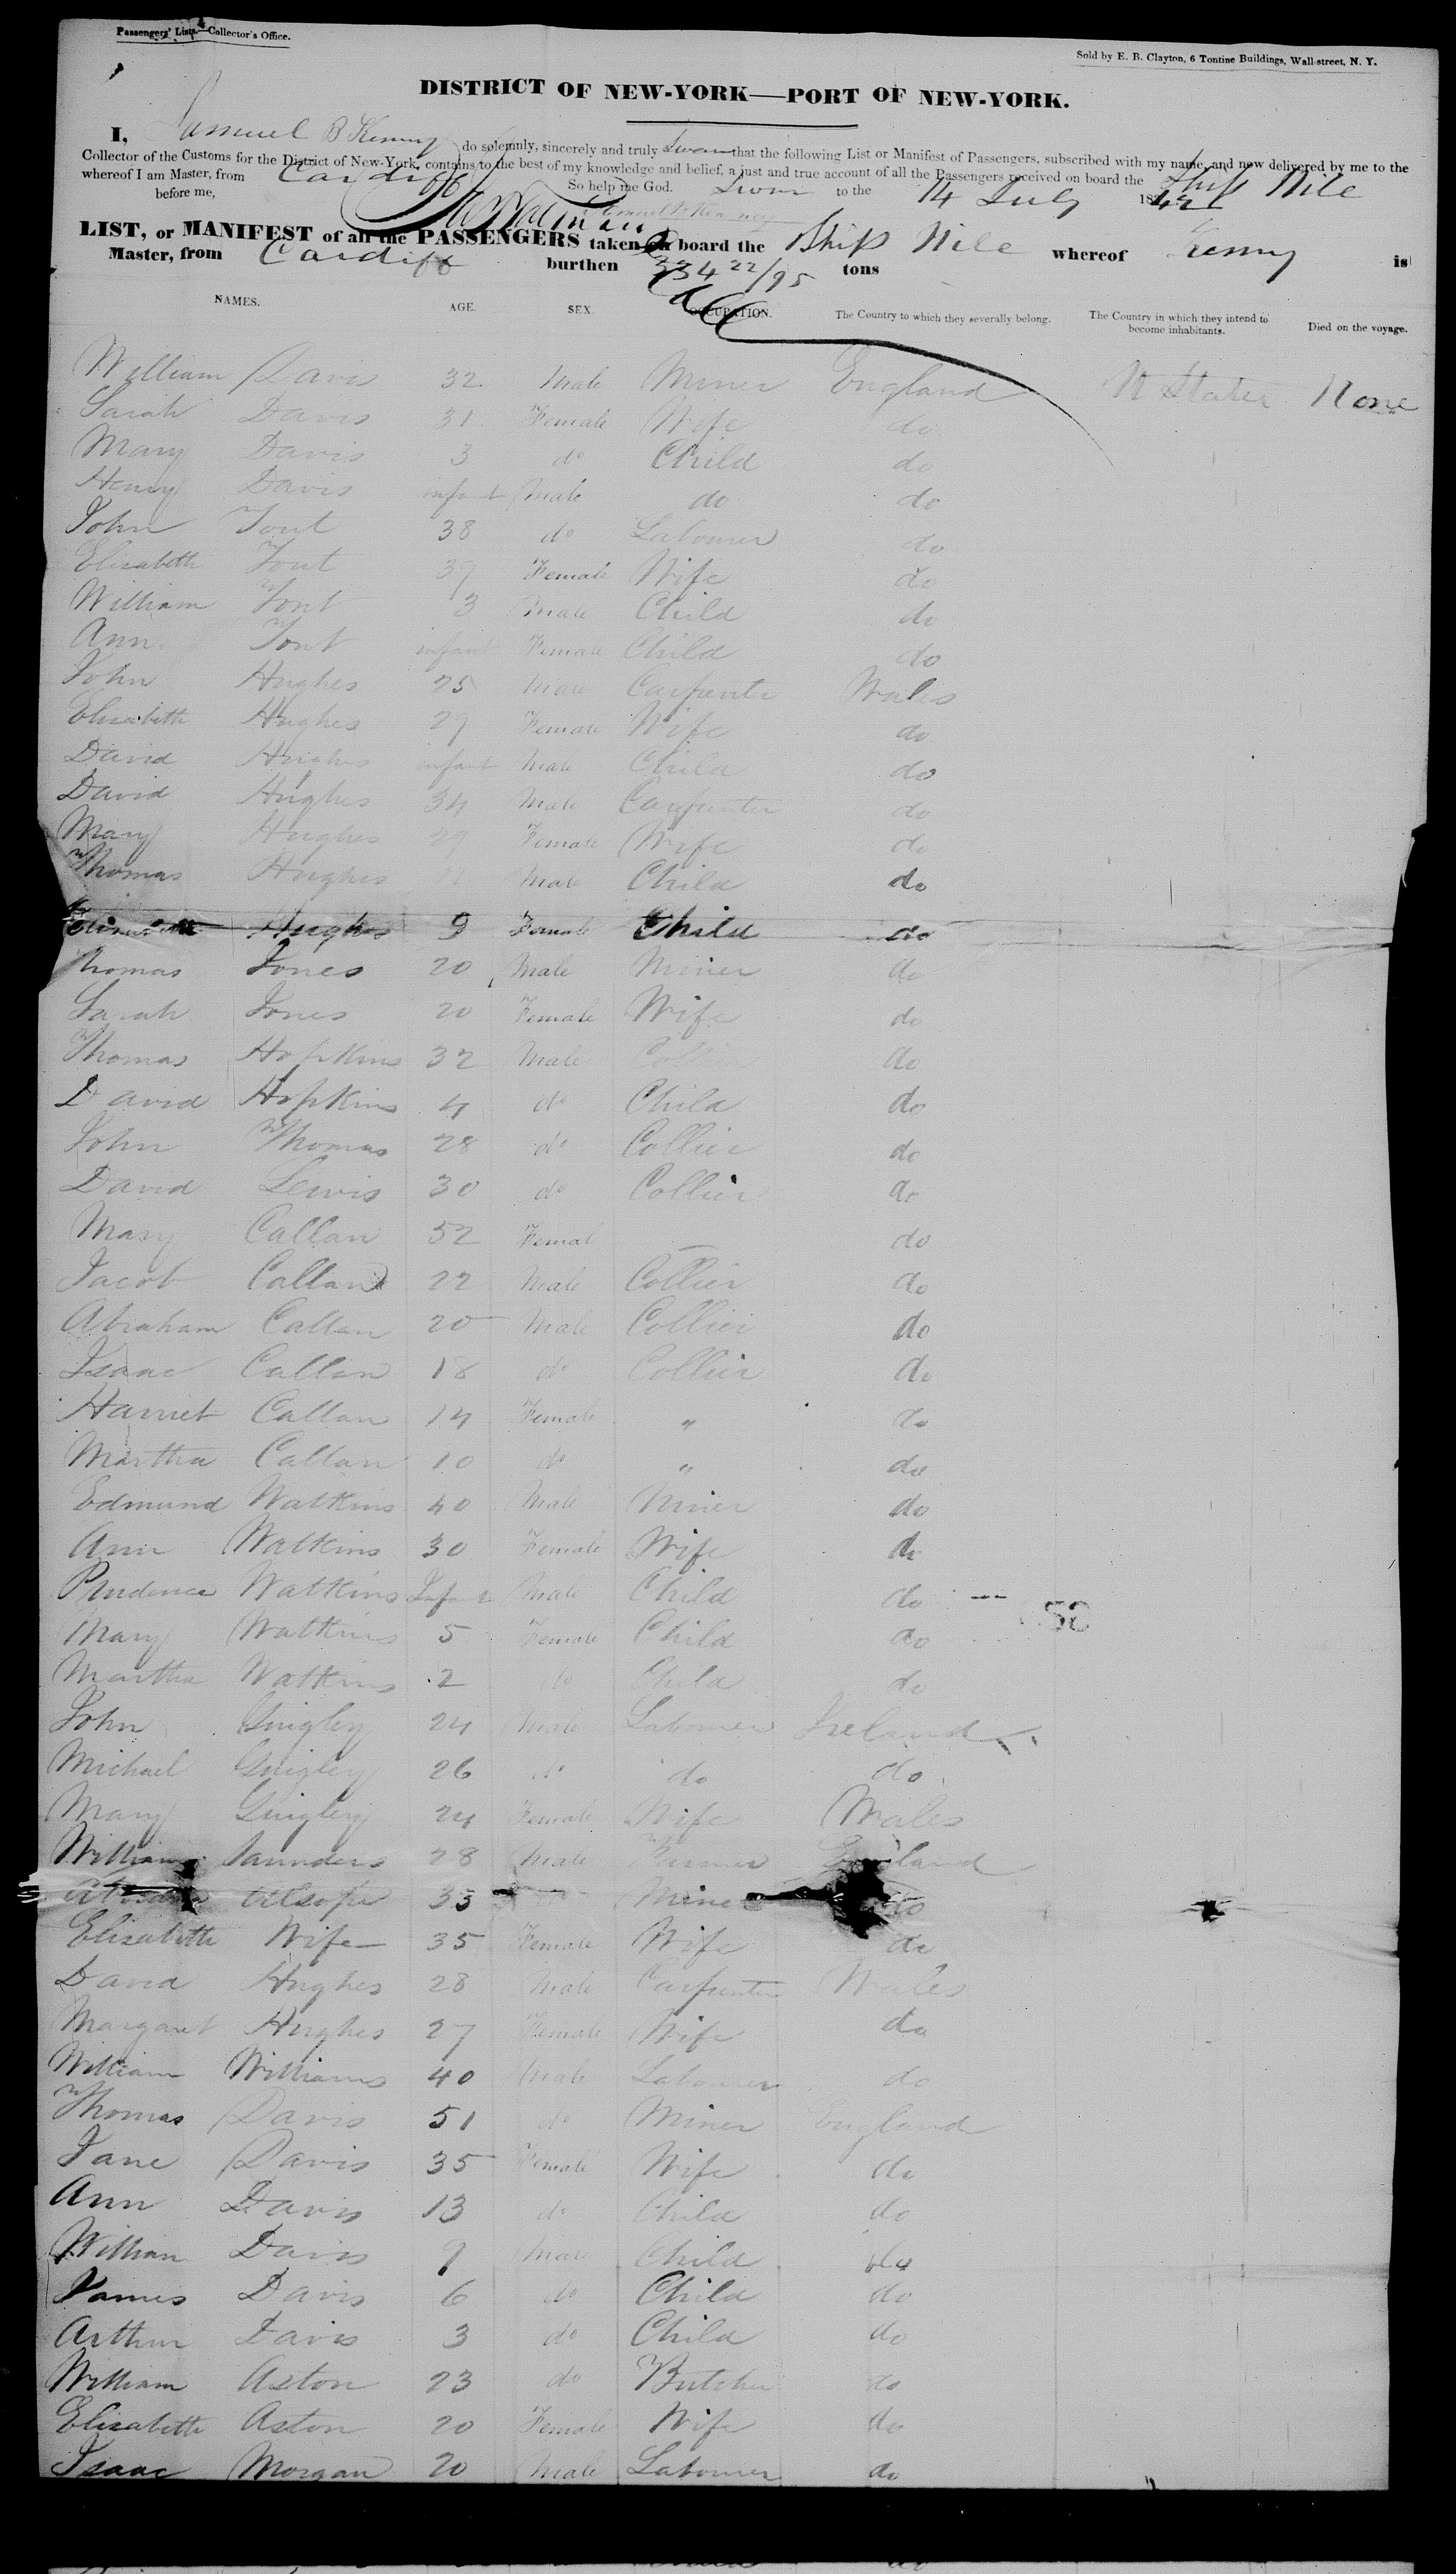 Passengers' Lists—Collector's Office.
Sold by E. B. Clayton, 6 Tontine Buildings, Wall-street, N. Y.
DISTRICT OF NEW-YORK—PORT OF NEW-YORK.
I, Samuel B Kenney do solemnly, sincerely and truly swear that the following List or Manifest of Passengers, subscribed with my name, and now delivered by me to the
Collector of the Customs for the District of New-York, contains to the best of my knowledge and belief, a just and true account of all the Passengers received on board the Ship Nile
whereof I am Master, from Cardiff So help me God. Sworn to the 14 July 18
before me,
LIST, or MANIFEST of all the PASSENGERS taken on board the Ship Nile whereof Kenny is
Master, from Cardiff burthen 334 22/95 tons
NAMES. AGE. SEX. OCCUPATION. The Country to which they severally belong. The Country in which they intend to become inhabitants. Died on the voyage.
William Davis 32 Male Miner England U States None
Sarah Davis 31 Female Wife do
Mary Davis 3 do Child do
Henry Davis infant Male do do
John Tout 38 do Labourer do
Elisabeth Tout 39 Female Wife do
William Tout 3 Male Child do
Ann Tout infant Female Child do
John Hughes 25 Male Carpenter Wales
Elisabeth Hughes 29 Female Wife do
David Hughes infant Male Child do
David Hughes 34 Male Carpenter do
Mary Hughes 29 Female Wife do
Thomas Hughes 11 Male Child do
Hughes 9 Female Child do
Thomas Jones 20 Male Miner do
Sarah Jones 20 Female Wife do
Thomas Hopkins 32 Male Collier do
David Hopkins 4 do Child do
John Thomas 28 do Collier do
David Lewis 30 do Collier do
Mary Callan 52 Femal — do
Jacob Callan 22 Male Collier do
Abraham Callan 20 Male Collier do
Isaac Callan 18 do Collier do
Harriet Callan 14 Female " do
Martha Callan 10 do " do
Edmund Watkins 40 Male Miner do
Ann Watkins 30 Female Wife do
Prudence Watkins Infant Male Child do
Mary Watkins 5 Female Child do
Martha Watkins 2 do Child do
John Guigley 24 Male Labourer Ireland
Michael Guigley 26 do do do
Mary Guigley 24 Female Wife Wales
William Saunders 28 Male Farmer England
Alsope 33 Miner do
Elisabeth Wife 35 Female Wife do
David Hughes 28 Male Carpenter Wales
Margaret Hughes 27 Female Wife do
William Williams 40 Male Labourer do
Thomas Davis 51 do Miner England
Jane Davis 35 Female Wife do
Ann Davis 13 do Child do
William Davis 9 Male Child do
James Davis 6 do Child do
Arthur Davis 3 do Child do
William Aston 23 do Butcher do
Elisabeth Aston 20 Female Wife do
Isaac Morgan 20 Male Labourer do